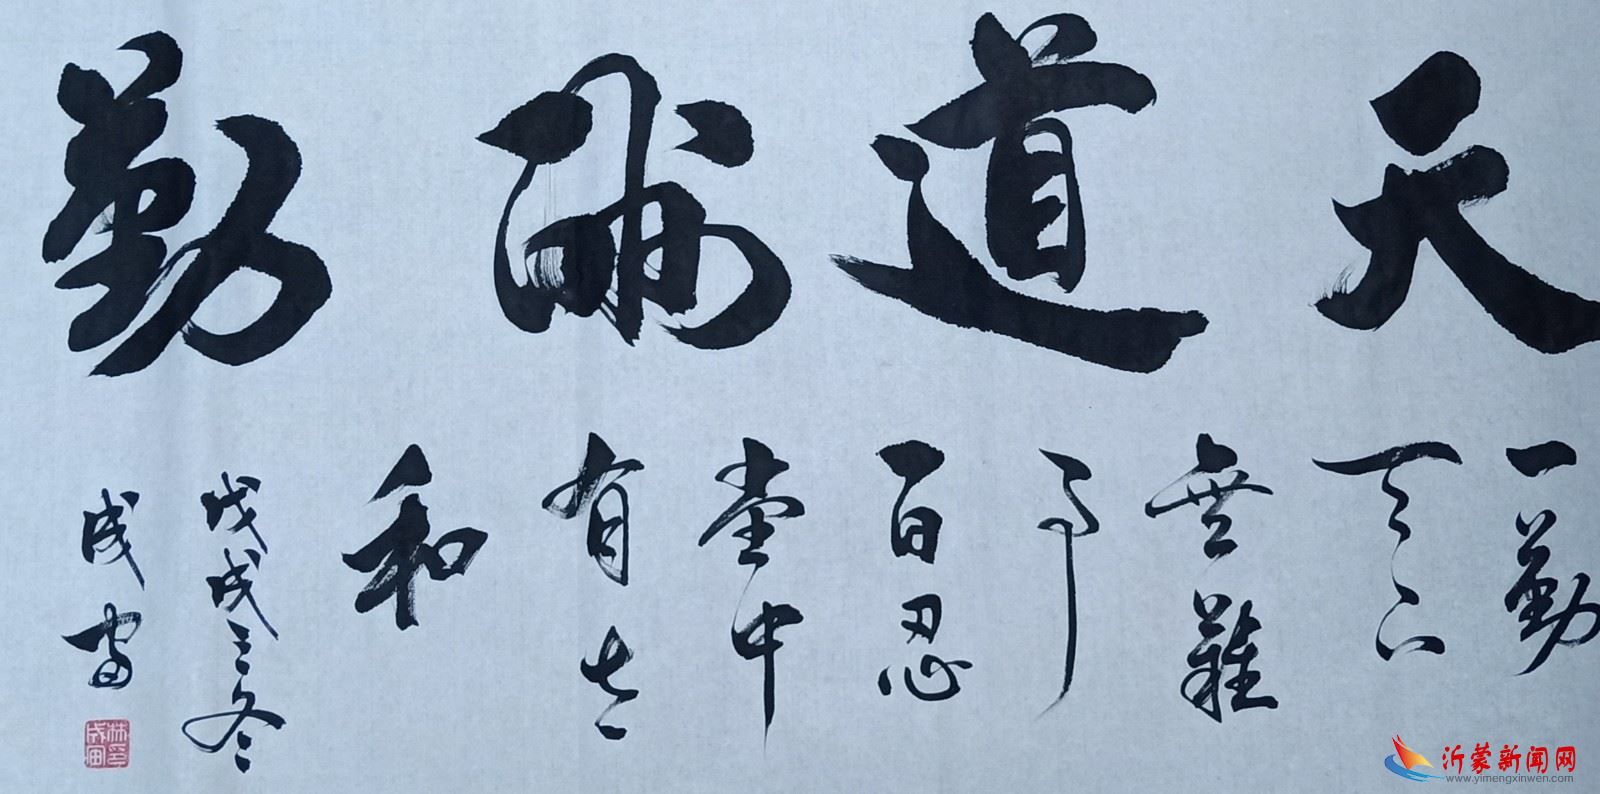 天道酬勤
一勤
天下
無難
事
百忍
堂中
有太
和
戊戌之冬
成富
林印成富
沂蒙新闻网
www.yimengxinwen.com